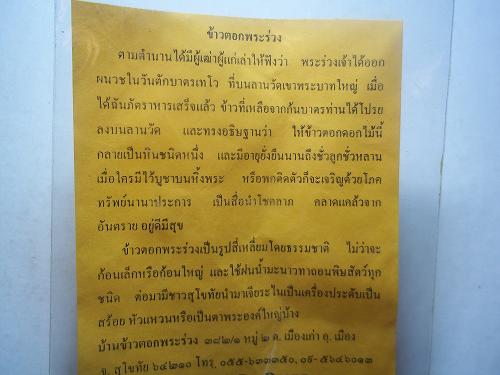 ข้าวตอกพระร่วง
ตามตำนานได้มีผู้เฒ่าผู้แก่เล่าให้ฟังว่า พระร่วงเจ้าได้ออก
ผนวชในวันตักบาตรเทโว ที่บนลานวัดเขาพระบาทใหญ่ เมื่อ
ได้ฉันภัตราหารเสร็จแล้ว ข้าวที่เหลือจากก้นบาตรท่านได้โปรย
ลงบนลานวัด และทรงอธิษฐานว่า ให้ข้าวตอกดอกไม้นี้
กลายเป็นหินชนิดหนึ่ง และมีอายุยั่งยืนนานถึงชั่วลูกชั่วหลาน
เมื่อใครมีไว้บูชาบนหิ้งพระ หรือพกติดตัวก็จะเจริญด้วยโภค
ทรัพย์นานาประการ เป็นสื่อนำโชคลาภ คลาดแคล้วจาก
อันตราย อยู่ดีมีสุข
ข้าวตอกพระร่วงเป็นรูปสี่เหลี่ยมโดยธรรมชาติ ไม่ว่าจะ
ก้อนเล็กหรือก้อนใหญ่ และใช้ฝนน้ำมะนาวทาถอนพิษสัตว์ทุก
ชนิด ต่อมามีชาวสุโขทัยนำมาเจียระไนเป็นเครื่องประดับเป็น
สร้อย หัวแหวนหรือเป็นตาพระองค์ใหญ่บ้าง
บ้านข้าวตอกพระร่วง ๓๘/๒/๑ หมู่ ๒ ต. เมืองเก่า อ. เมือง
จ. สุโขทัย ๖๔๒๑๐ โทร. ๐๕๕-๖๓๓๓๕๐, ๐๙-๕๖๔๖๐๑๓